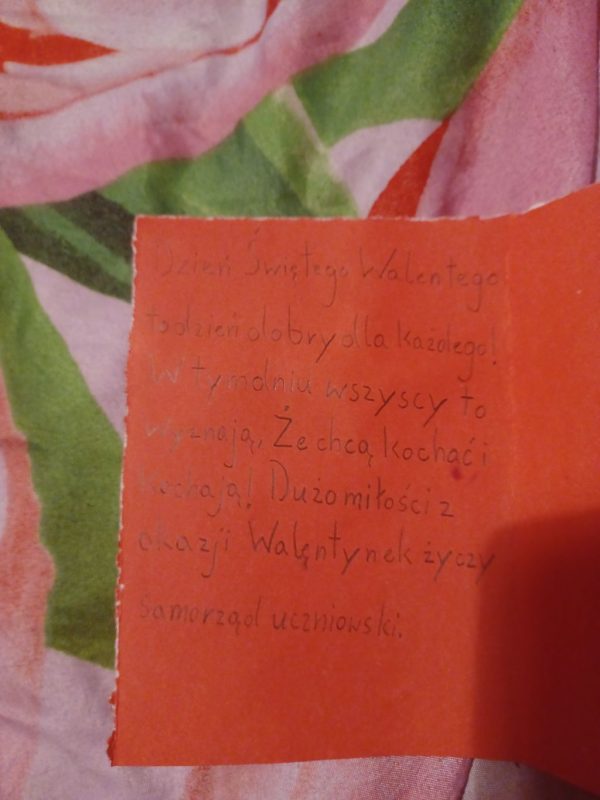 Dzień Świętego Walentego
to dzień dobry dla każdego!
W tym dniu wszyscy to
wyznają, Że chcą kochać i
kochają! Dużo miłości z
okazji Walęntynek życzy
samorząd uczniowski.